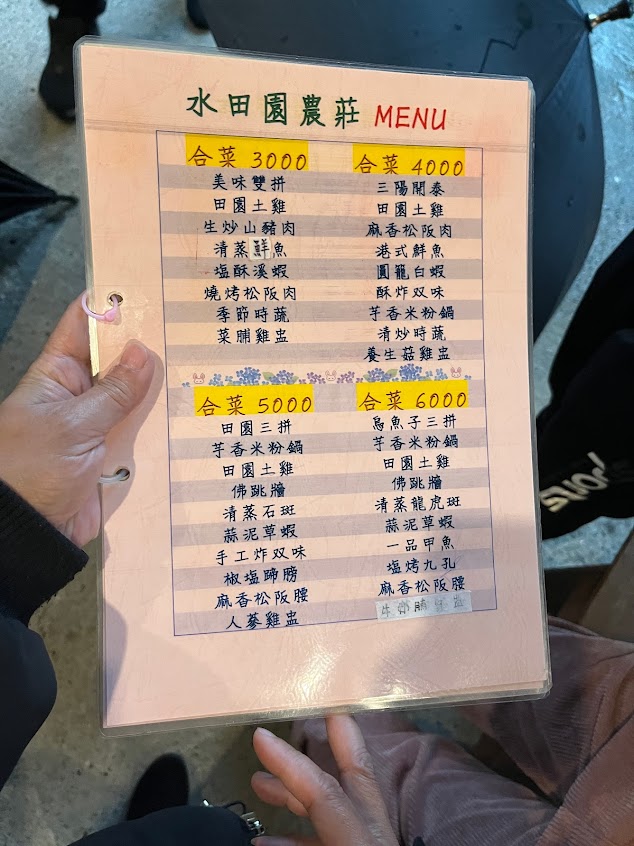 水田園農莊 MENU
合菜 3000
美味雙拼
田園土雞
生炒山豬肉
清蒸鮮魚
塩酥溪蝦
燒烤松阪肉
季節時蔬
菜脯雞盅
合菜 4000
三陽開泰
田園土雞
麻香松阪肉
港式鮮魚
圓籠白蝦
酥炸双味
芋香米粉鍋
清炒時蔬
養生菇雞盅
合菜 5000
田園三拼
芋香米粉鍋
田園土雞
佛跳牆
清蒸石斑
蒜泥草蝦
手工炸双味
椒塩蹄膀
麻香松阪膛
人蔘雞盅
合菜 6000
烏魚子三拼
芋香米粉鍋
田園土雞
佛跳牆
清蒸龍虎斑
蒜泥草蝦
一品甲魚
塩烤九孔
麻香松阪膛